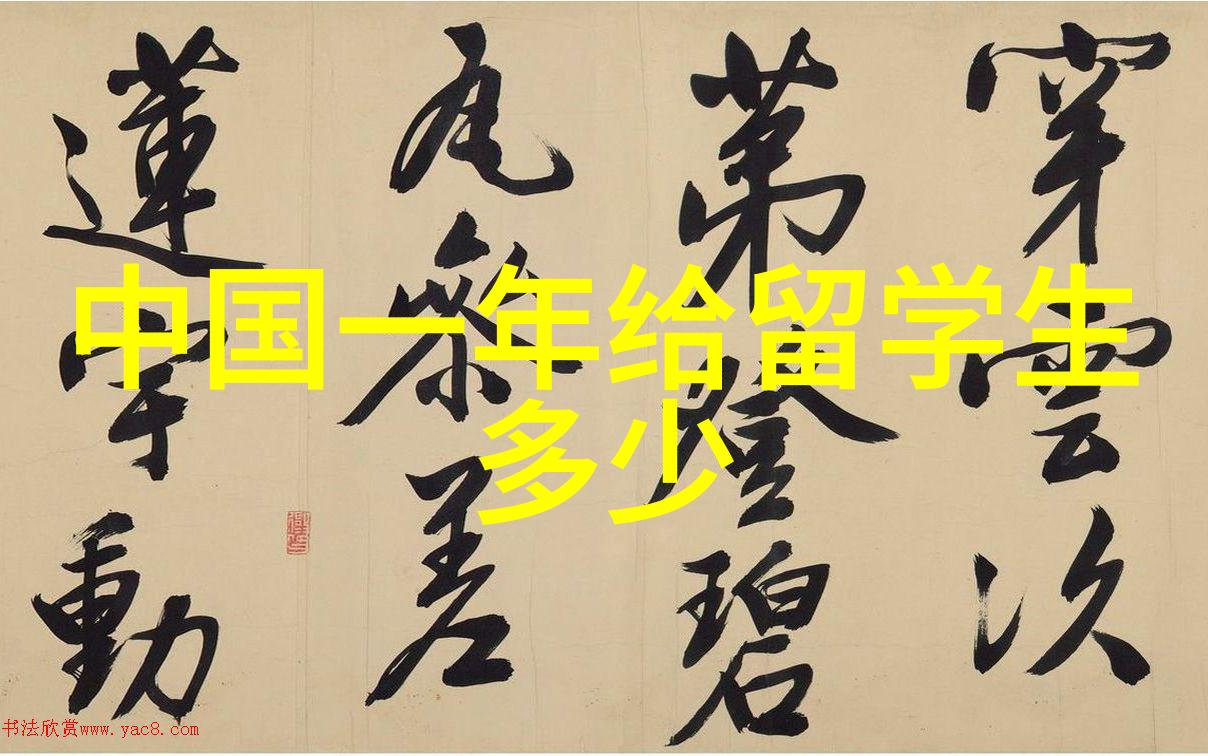 中国一年给留学生
多少
穿雲次
苐登碧
瓦叅差
蓮宇動
书法欣赏www.yac8.com